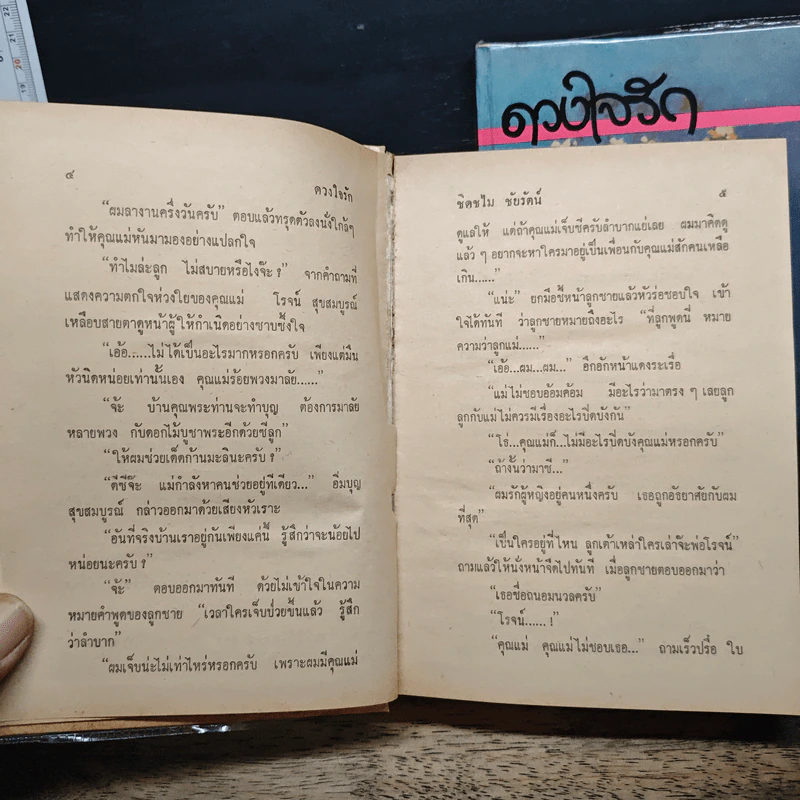 ดวงใจรัก
๔
ดวงใจรัก
“ผมลางานครึ่งวันครับ” ตอบแล้วทรุดตัวลงนั่งใกล้ๆ
ทำให้คุณแม่หันมามองอย่างแปลกใจ
“ทำไมล่ะลูก ไม่สบายหรือไงจ๊ะ ?” จากคำถามที่
แสดงความตกใจห่วงใยของคุณแม่ โรจน์ สุขสมบูรณ์
เหลือบสายตาดูหน้าผู้ให้กำเนิดอย่างซาบซึ้งใจ
“เอ้อ......ไม่ได้เป็นอะไรมากหรอกครับ เพียงแต่มึน
หัวนิดหน่อยเท่านั้นเอง คุณแม่ร้อยพวงมาลัย......”
“จ้ะ บ้านคุณพระท่านจะทำบุญ ต้องการมาลัย
หลายพวง กับดอกไม้บูชาพระอีกด้วยซีลูก”
“ให้ผมช่วยเด็ดก้านมะลินะครับ ?”
“ดีซีจ๊ะ แม่กำลังหาคนช่วยอยู่ทีเดียว...” อิ่มบุญ
สุขสมบูรณ์ กล่าวออกมาด้วยเสียงหัวเราะ
“อันที่จริงบ้านเราอยู่กันเพียงแค่นี้ รู้สึกว่าจะน้อยไป
หน่อยนะครับ ?”
“จ้ะ” ตอบออกมาทันที ด้วยไม่เข้าใจในความ
หมายคำพูดของลูกชาย “เวลาใครเจ็บป่วยขึ้นแล้ว รู้สึก
ว่าลำบาก”
“ผมเจ็บน่ะไม่เท่าไหร่หรอกครับ เพราะผมมีคุณแม่
ชิดชไม ชัยรัตน์
๕
ดูแลให้ แต่ถ้าคุณแม่เจ็บซีครับลำบากแย่เลย ผมมาคิดดู
แล้ว ๆ อยากจะหาใครมาอยู่เป็นเพื่อนกับคุณแม่สักคนเหลือ
เกิน......”
“แน่ะ” ยกมือชี้หน้าลูกชายแล้วหัวร่อชอบใจ เข้า
ใจได้ทันที ว่าลูกชายหมายถึงอะไร “ที่ลูกพูดนี่ หมาย
ความว่าลูกแม่......”
“เอ้อ...ผม...ผม...” อึกอักหน้าแดงระเรื่อ
“แม่ไม่ชอบอ้อมค้อม มีอะไรว่ามาตรง ๆ เลยลูก
ลูกกับแม่ไม่ควรมีเรื่องอะไรปิดบังกัน”
“โธ่...คุณแม่ก็...ไม่มีอะไรปิดบังคุณแม่หรอกครับ”
“ถ้างั้นว่ามาซี...”
“ผมรักผู้หญิงอยู่คนหนึ่งครับ เธอถูกอัธยาศัยกับผม
ที่สุด”
“เป็นใครอยู่ที่ไหน ลูกเต้าเหล่าใครเล่าจ๊ะพ่อโรจน์”
ถามแล้วให้นั่งหน้าจืดไปทันที เมื่อลูกชายตอบออกมาว่า
“เธอชื่อถนอมนวลครับ”
“โรจน์......!”
“คุณแม่ คุณแม่ไม่ชอบเธอ...” ถามเร็วปรื๋อ ใบ